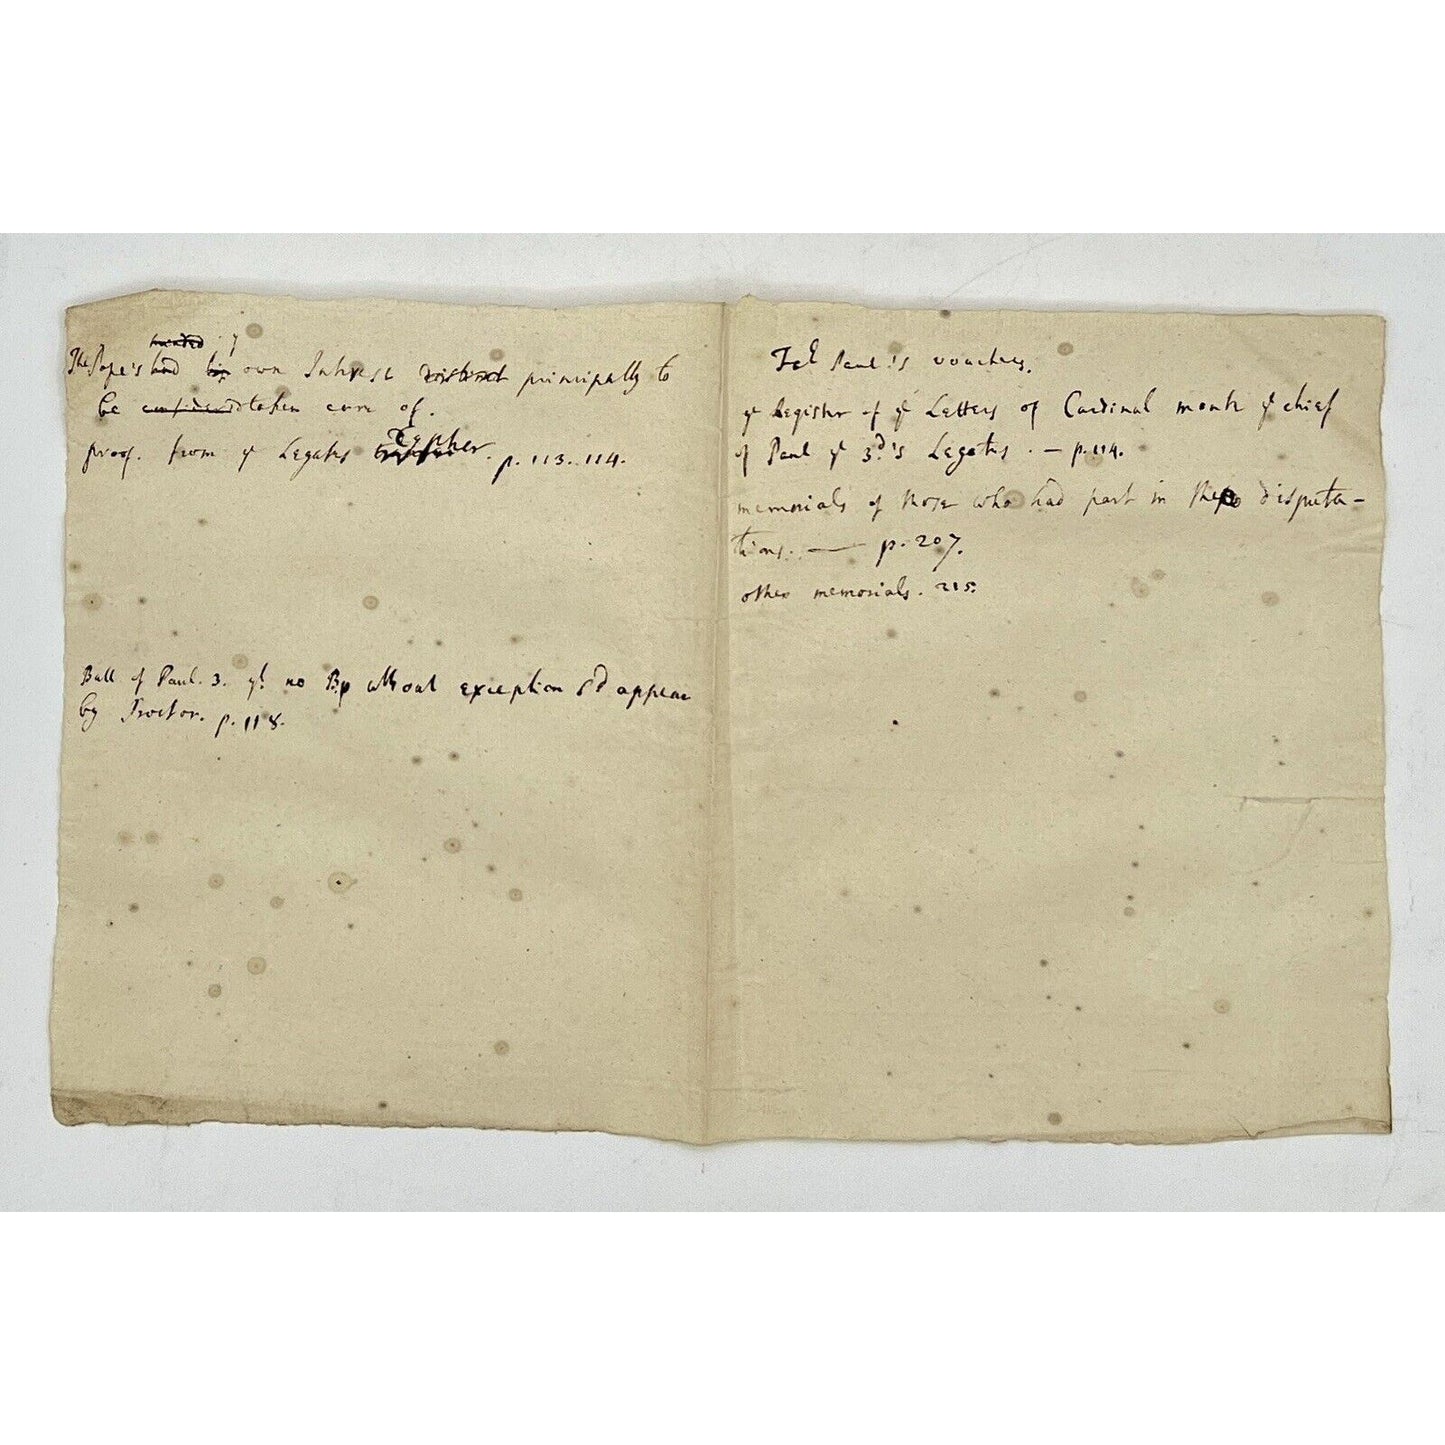 The Pope's own Interest principally to
be taken care of.
proof. from ye Legates Cypher. p. 113. 114.
Bull of Paul. 3. yt. no Bp without exception sd appear
by Proctor. p. 118.
Fa Paul's vouchers.
ye Register of ye Letters of Cardinal monte ye chief
of Paul ye 3d's Legates. — p. 114.
memorials of those who had part in these disputa-
tions. — p. 207.
other memorials. 215.